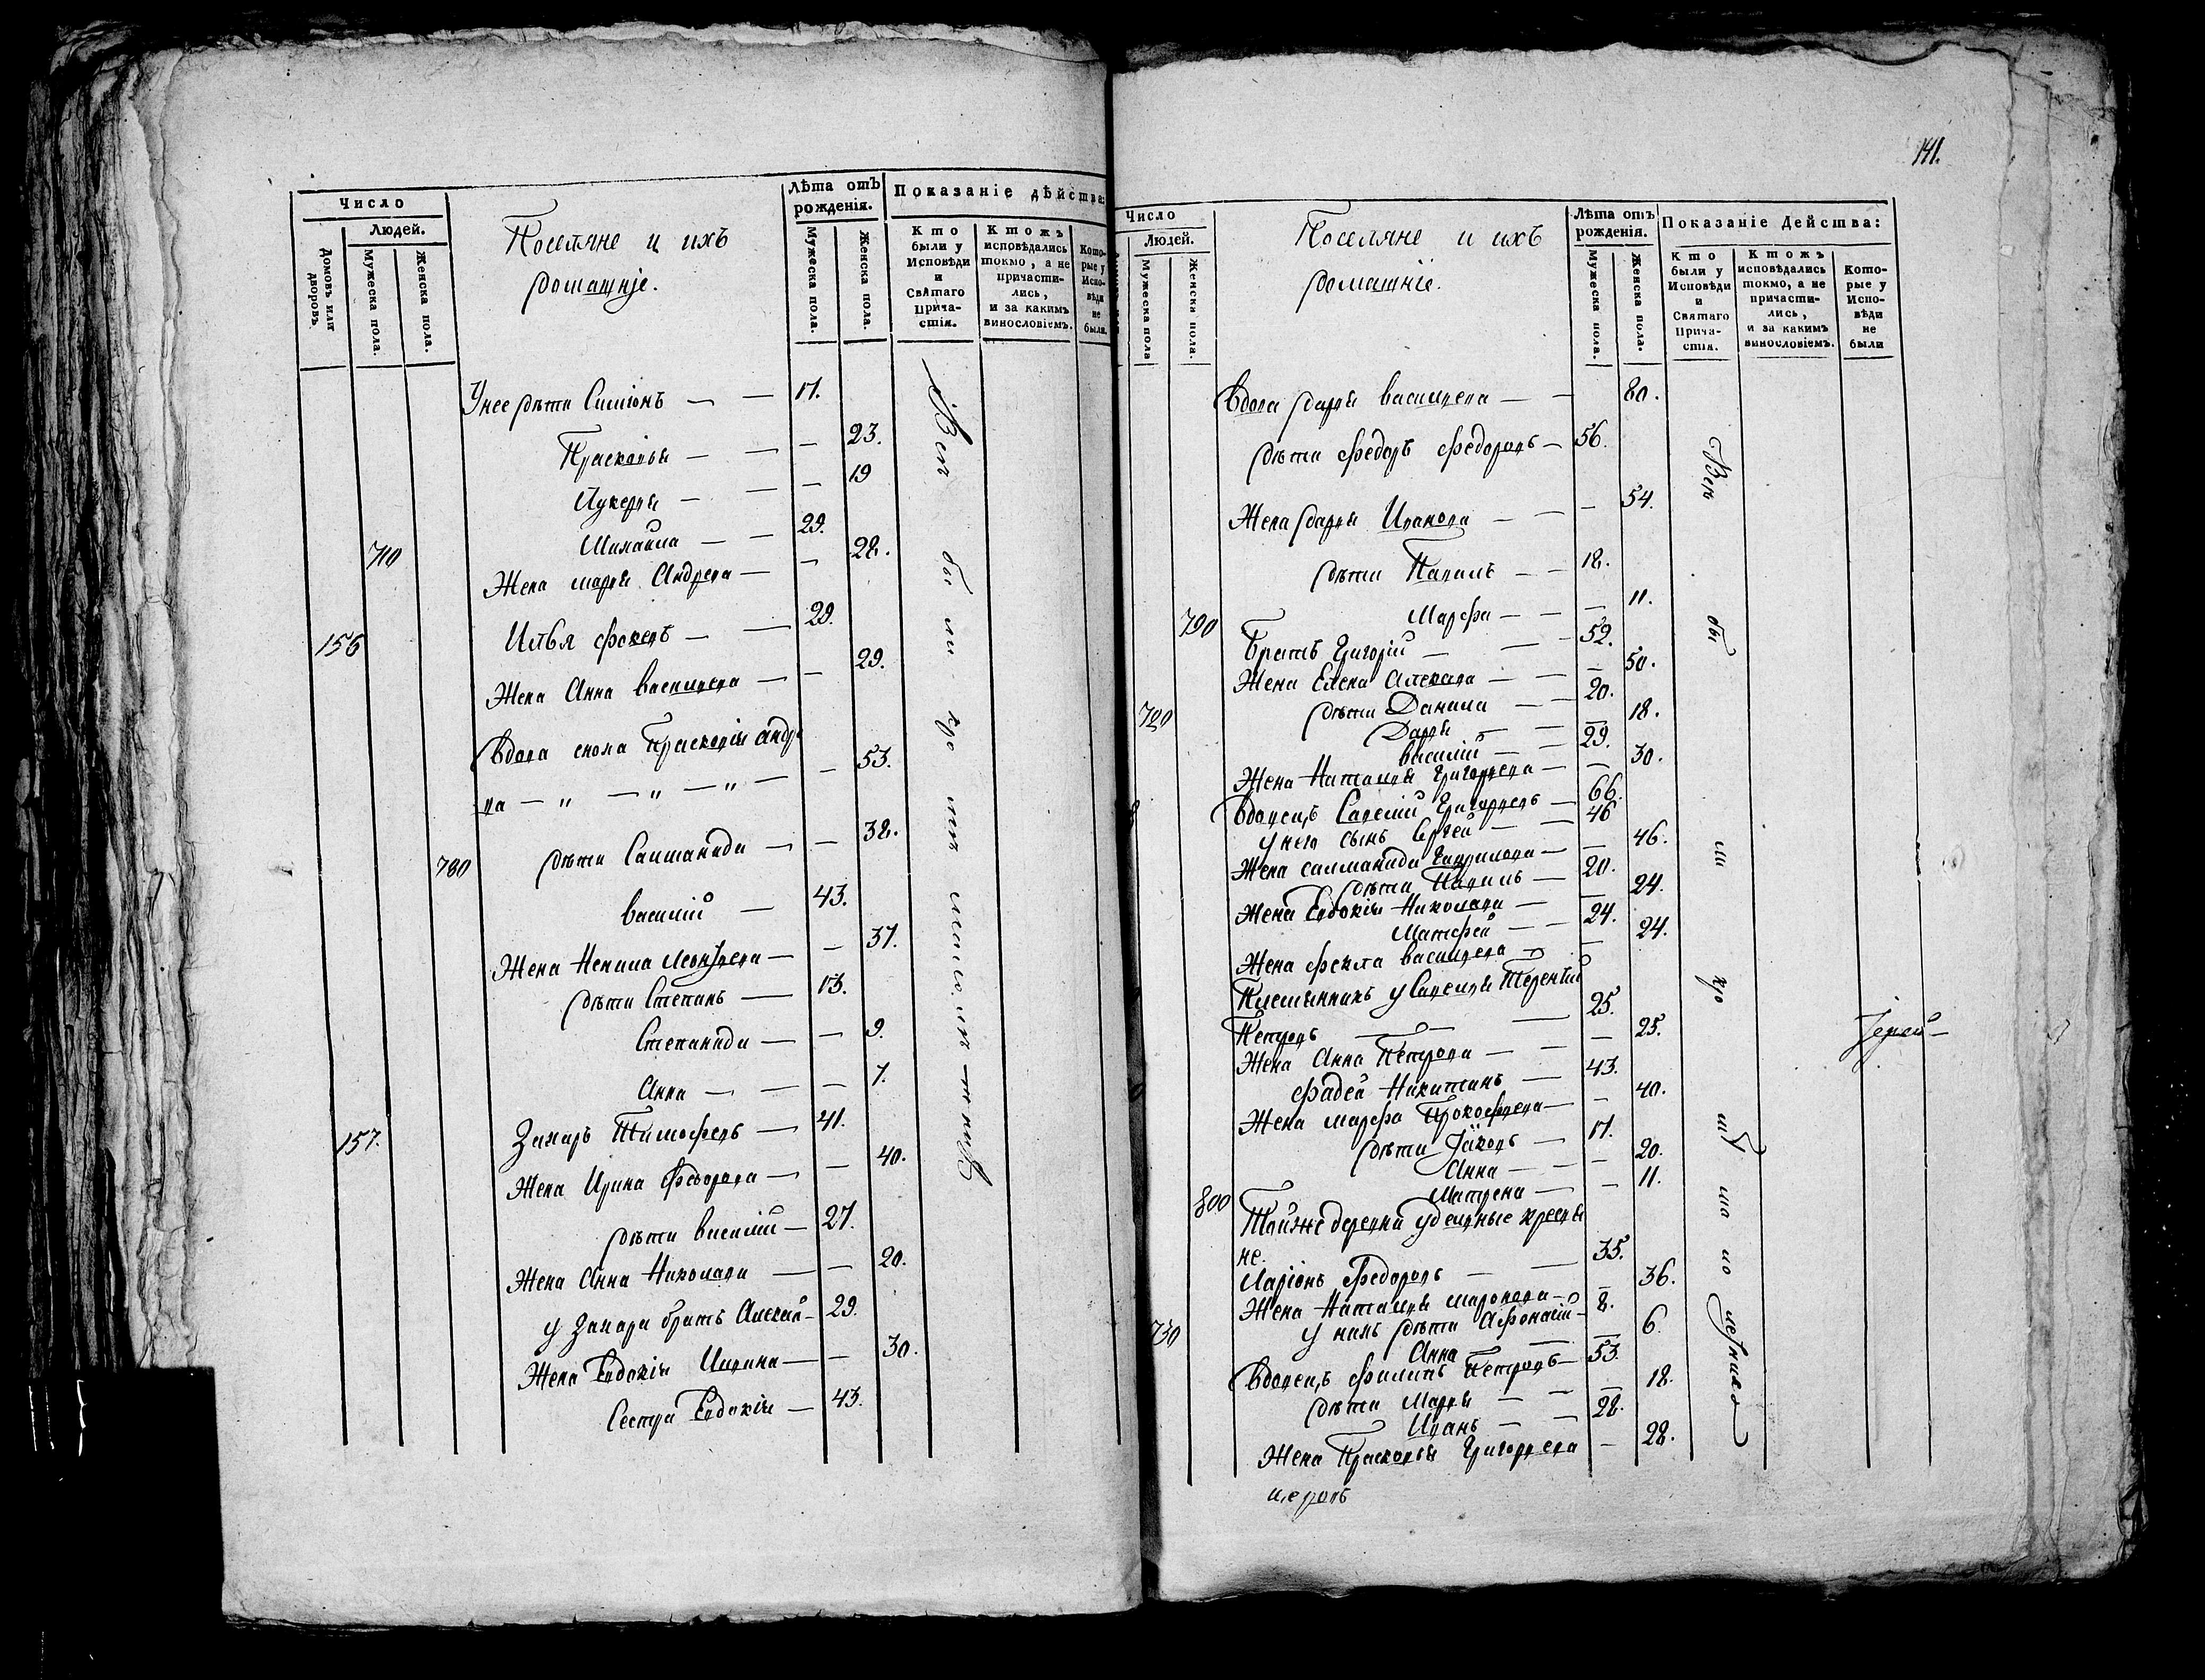 Число
Людей.
Домовъ или дворовъ.
Мужеска пола.
Женска пола.
Поселяне и ихъ
домашніе.
Лѣта отъ
рожденія.
Мужеска пола.
Женска пола.
Показаніе дѣйства:
Кто
были у
Исповѣди
и
Святаго
Прича-
стія.
Ктожъ
исповѣдались
токмо, а не
причасти-
лись,
и за какимъ
винословіемъ.
Кото-
рые у
Испо-
вѣди
не
были.
У нее дѣти Симіонъ — — 17.
Прасковья — — — 23.
Лукерья — — — 19
710 Михаила — — 29.
Жена марья Андреева — — 28.
156 Илья фокеевъ — — 29.
Жена Анна васильева — — 29.
Вдова Прасковія Андре
ва — „ — „ — „ — — 53.
780 дѣти Саломанида — — 32.
василій — 43.
Жена Ненила Леонтьева — — 37.
дѣти Степанъ — 13.
Степанида — — 9.
Анна — — — 7.
157. Захаръ Тимофеевъ — 41.
Жена Ирина Федорова — — 40.
дѣти василій — 27.
Жена Анна Николаева — — 20.
у Захара братъ Алексей — 29.
Жена Евдокія — — 30.
Сестра Евдокія — 43.
Всѣ бы ли кро мѣ
141.
Число
Людей.
Мужеска пола
Женска пола.
Поселяне и ихъ
домашніе.
Лѣта отъ
рожденія.
Мужеска пола.
Женска пола.
Показаніе Действа:
Кто
были у
Исповѣди
и
Святаго
Прича-
стія.
Ктожъ
исповѣдались
токмо, а не
причасти-
лись,
и за какимъ
винословіемъ.
Кото-
рые у
Испо-
вѣди
не
были
Вдова дарья васильева — — 80.
дѣти федоръ федоровъ — 56.
Жена дарья Иванова — — — 54.
дѣти Павилъ — — 18.
790 Марфа — — — 11.
Братъ Григорій — — 52.
Жена Елена Алексеева — — — 50.
720 дѣти Данила — — 20.
Дарья — — — 18.
василій — — 29.
Жена Наталья Григорьева — — 30.
Вдовецъ Савелій Григорьевъ — 66.
у него сынъ Сергей — — 46
Жена саломанида Гаврилова — — 46.
дѣти Павилъ — 20.
Жена Евдокія Николаева — — 24.
Матфей — — 24.
Жена фекла васильева — — 24.
Племянникъ у Савелья Терентій
Петровъ — — — 25.
Жена Анна Петрова — — — 25.
Фадей Никитинъ — 43.
Жена марфа Прокофьева — — 40.
дѣти Іаковъ — 17.
Анна — — — 20.
800 Матрена — — 11.
Тойже деревни удельные кресьтья
не.
Ларіонъ Федоровъ — — 35.
Жена Наталья — — 36.
730 у нихъ дѣти Афонасій — 8.
Анна — — — 6.
Вдовецъ филипъ Петровъ — 53.
дѣти Марья — — — 18.
Иванъ — — 28.
Жена Прасковья Григорьева — 28.
Всѣ бы ли кро мѣ ма ло летнихъ
Іерей —